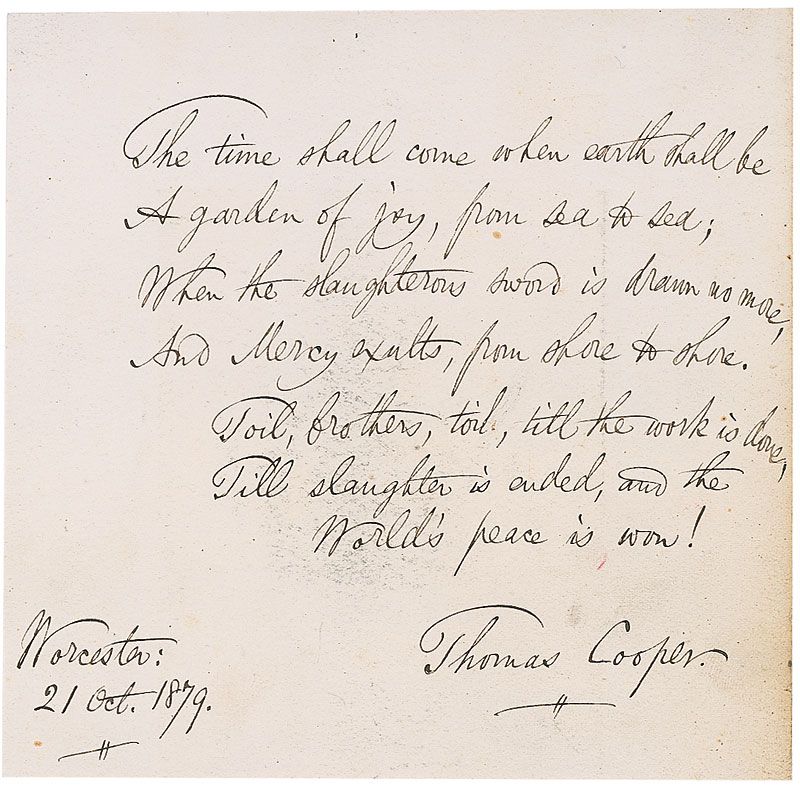 The time shall come when earth shall be
A garden of joy, from sea to sea;
When the slaughterous sword is drawn no more,
And Mercy exults, from shore to shore.
Toil, brothers, toil, till the work is done,
Till slaughter is ended, and the
World's peace is won!
Worcester:
21 Oct. 1879.
Thomas Cooper.